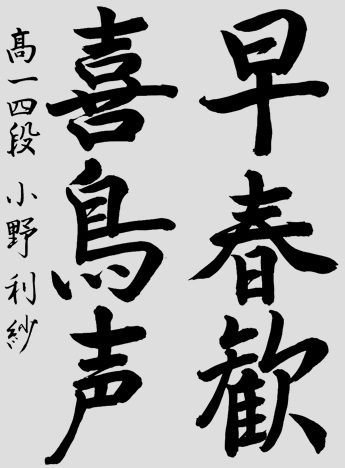 早春歓
喜鳥声
高一四段 小野利紗